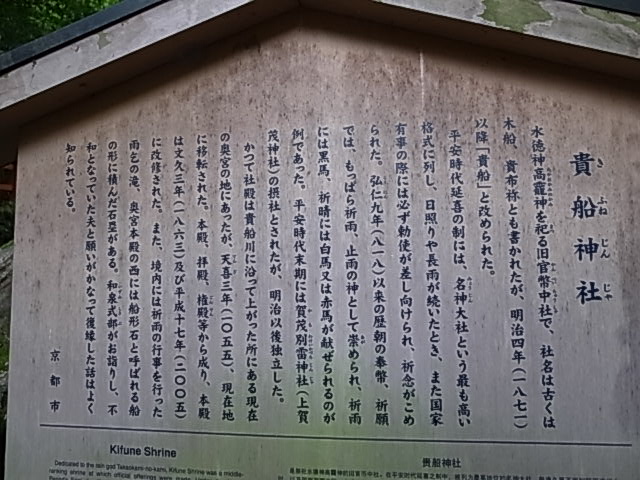 貴船神社
きふねじんじゃ
水徳神高龗神を祀る旧官幣中社で、社名は古くは
木船、貴布祢とも書かれたが、明治四年(一八七一)
以降「貴船」と改められた。
平安時代延喜の制には、名神大社という最も高い
格式に列し、日照りや長雨が続いたとき、また国家
有事の際には必ず勅使が差し向けられ、祈念がこめ
られた。弘仁九年(八一八)以来の歴朝の奉幣、祈願
では、もっぱら祈雨、止雨の神として崇められ、祈雨
には黒馬、祈晴には白馬又は赤馬が献ぜられるのが
例であった。平安時代末期には賀茂別雷神社(上賀
茂神社)の摂社とされたが、明治以後独立した。
かつて社殿は貴船川に沿って上がった所にある現在
の奥宮の地にあったが、天喜三年(一〇五五)、現在地
に移転された。本殿、拝殿、権殿等から成り、本殿
は文久三年(一八六三)及び平成十七年(二〇〇五)
に改修された。また、境内には祈雨の行事を行った
雨乞の滝、奥宮本殿の西には船形石と呼ばれる船
の形に積んだ石塁がある。和泉式部がお詣りし、不
和となっていた夫と願いがかなって復縁した話はよく
知られている。
京都市
Kifune Shrine
Dedicated to the rain god Takaokami-no-kami, Kifune Shrine was a middle-
ranking shrine at which official offerings were made
貴船神社